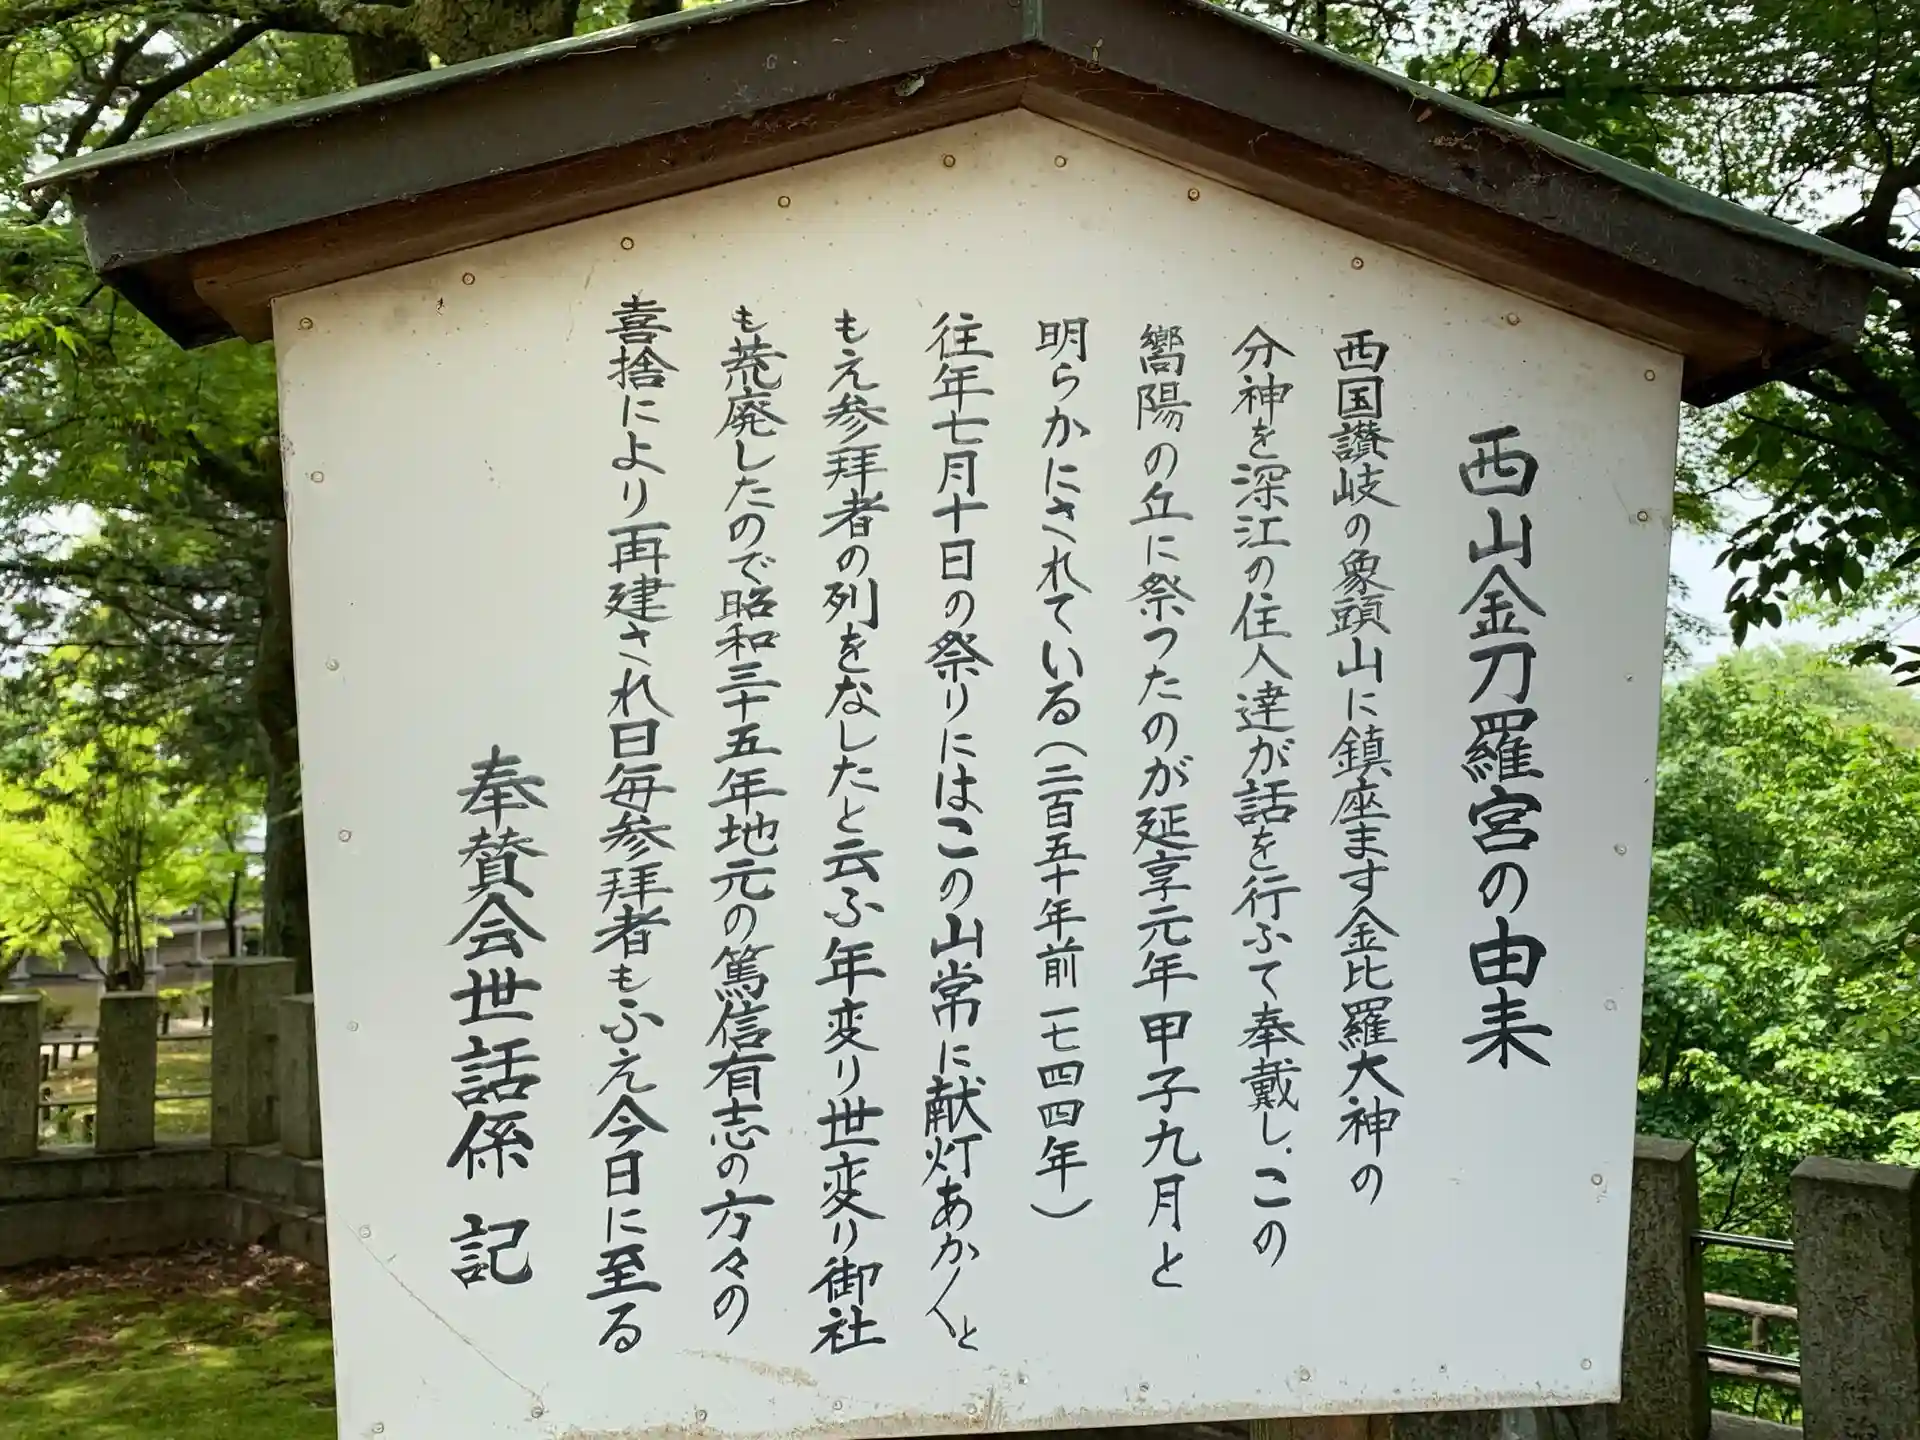 西山金刀羅宮の由来
西国讃岐の象頭山に鎮座ます金比羅大神の
分神を深江の住人達が話を行ふて奉戴し、この
嚮陽の丘に祭つたのが延享元年甲子九月と
明らかにされている(二百五十年前一七四四年)
往年七月十日の祭りにはこの山常に献灯あか〱と
もえ参拜者の列をなしたと云ふ年変り世変り御社
も荒廃したので昭和三十五年地元の篤信有志の方々の
喜捨により再建され日毎参拜者もふえ今日に至る
奉賛会世話係 記